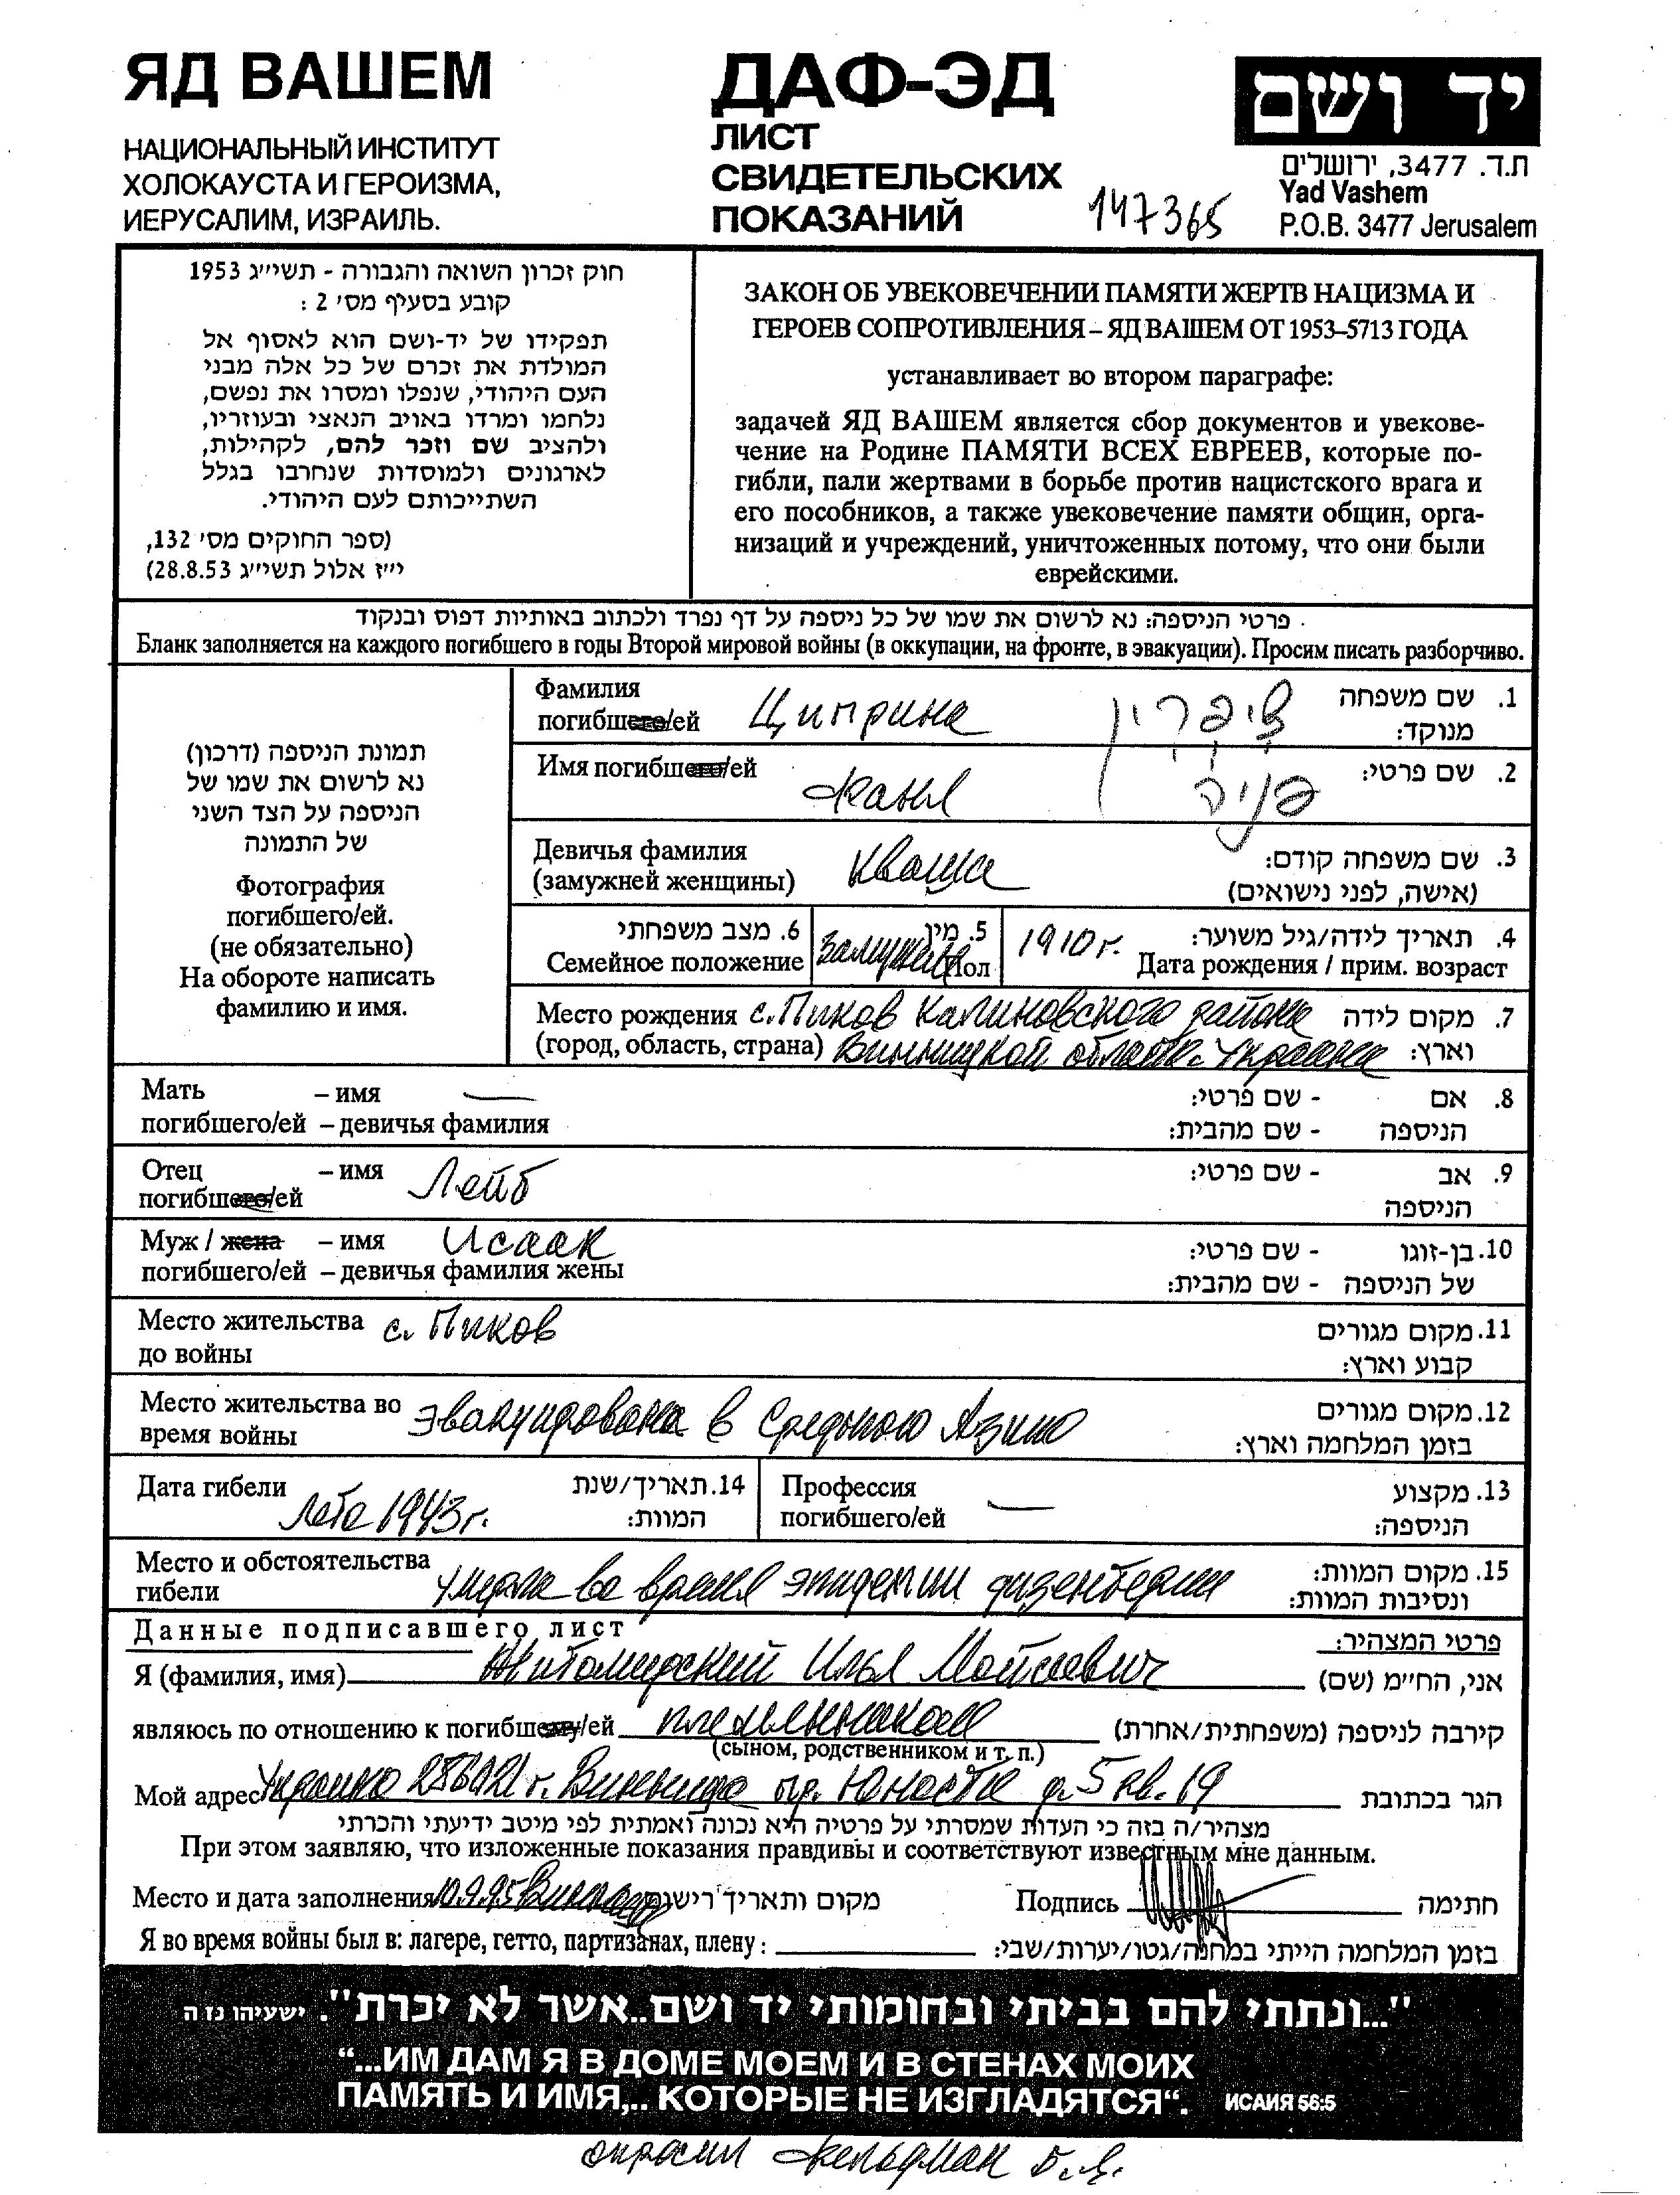 ЯД ВАШЕМ
НАЦИОНАЛЬНЫЙ ИНСТИТУТ
ХОЛОКАУСТА И ГЕРОИЗМА,
ИЕРУСАЛИМ, ИЗРАИЛЬ.
ДАФ-ЭД
ЛИСТ
СВИДЕТЕЛЬСКИХ
ПОКАЗАНИЙ
147365
יד ושם
ת.ד. 3477, ירושלים
Yad Vashem
P.O.B. 3477 Jerusalem
חוק זכרון השואה והגבורה - תשי״ג 1953
קובע בסעיף מס׳ 2 :
תפקידו של יד-ושם הוא לאסוף אל
המולדת את זכרם של כל אלה מבני
העם היהודי, שנפלו ומסרו את נפשם,
נלחמו ומרדו באויב הנאצי ובעוזריו,
ולהציב שם וזכר להם, לקהילות,
לארגונים ולמוסדות שנחרבו בגלל
השתייכותם לעם היהודי.
(ספר החוקים מס׳ 132,
י״ז אלול תשי״ג 28.8.53)
ЗАКОН ОБ УВЕКОВЕЧЕНИИ ПАМЯТИ ЖЕРТВ НАЦИЗМА И
ГЕРОЕВ СОПРОТИВЛЕНИЯ – ЯД ВАШЕМ ОТ 1953–5713 ГОДА
устанавливает во втором параграфе:
задачей ЯД ВАШЕМ является сбор документов и увекове-
чение на Родине ПАМЯТИ ВСЕХ ЕВРЕЕВ, которые по-
гибли, пали жертвами в борьбе против нацистского врага и
его пособников, а также увековечение памяти общин, орга-
низаций и учреждений, уничтоженных потому, что они были
еврейскими.
פרטי הניספה: נא לרשום את שמו של כל ניספה על דף נפרד ולכתוב באותיות דפוס ובנקוד
Бланк заполняется на каждого погибшего в годы Второй мировой войны (в оккупации, на фронте, в эвакуации). Просим писать разборчиво.
תמונת הניספה (דרכון)
נא לרשום את שמו של
הניספה על הצד השני
של התמונה
Фотография
погибшего/ей.
(не обязательно)
На обороте написать
фамилию и имя.
Фамилия
погибшего/ей Циприна ציפרין
1. שם משפחה
מנוקד:
Имя погибшего/ей Фаня פניה
2. שם פרטי:
Девичья фамилия
(замужней женщины) Кваша
3. שם משפחה קודם:
(אישה, לפני נישואים)
6. מצב משפחתי
Семейное положение замужняя
5. מין
Пол
1910 г.
4. תאריך לידה/גיל משוער:
Дата рождения / прим. возраст
Место рождения с. Пиков Калиновского района
(город, область, страна) Винницкой области. Украина
7. מקום לידה
וארץ:
Мать – имя —
погибшего/ей – девичья фамилия
8. אם - שם פרטי:
הניספה - שם מהבית:
Отец – имя Лейб
погибшего/ей
9. אב - שם פרטי:
הניספה
Муж / жена – имя Исаак
погибшего/ей – девичья фамилия жены
10. בן-זוגו - שם פרטי:
של הניספה - שם מהבית:
Место жительства с. Пиков
до войны
11. מקום מגורים
קבוע וארץ:
Место жительства во эвакуирована в Среднюю Азию
время войны
12. מקום מגורים
בזמן המלחמה וארץ:
Дата гибели лето 1943 г.
14. תאריך/שנת
המוות:
Профессия —
погибшего/ей
13. מקצוע
הניספה:
Место и обстоятельства
гибели умерла во время эпидемии дизентерии
15. מקום המוות:
ונסיבות המוות:
Данные подписавшего лист
פרטי המצהיר:
Я (фамилия, имя) Житомирский Илья Мойсевич
אני, החי״מ (שם)
являюсь по отношению к погибшему/ей племянником
קירבה לניספה (משפחתית/אחרת)
(сыном, родственником и т. п.)
Мой адрес Украина 286021 г. Винница пр. Юности д. 5 кв. 19
הגר בכתובת
מצהיר/ה בזה כי העדות שמסרתי על פרטיה היא נכונה ואמתית לפי מיטב ידיעתי והכרתי
При этом заявляю, что изложенные показания правдивы и соответствуют известным мне данным.
Место и дата заполнения 10.9.95 Винница
מקום ותאריך רישום
Подпись
חתימה
Я во время войны был в: лагере, гетто, партизанах, плену:
בזמן המלחמה הייתי במחנה/גטו/יערות/שבי:
"...ונתתי להם בביתי ובחומותי יד ושם..אשר לא יכרת". ישעיהו נו ה
“...ИМ ДАМ Я В ДОМЕ МОЕМ И В СТЕНАХ МОИХ
ПАМЯТЬ И ИМЯ,.. КОТОРЫЕ НЕ ИЗГЛАДЯТСЯ“. ИСАИЯ 56:5
опросил Фельдман Б. Я.